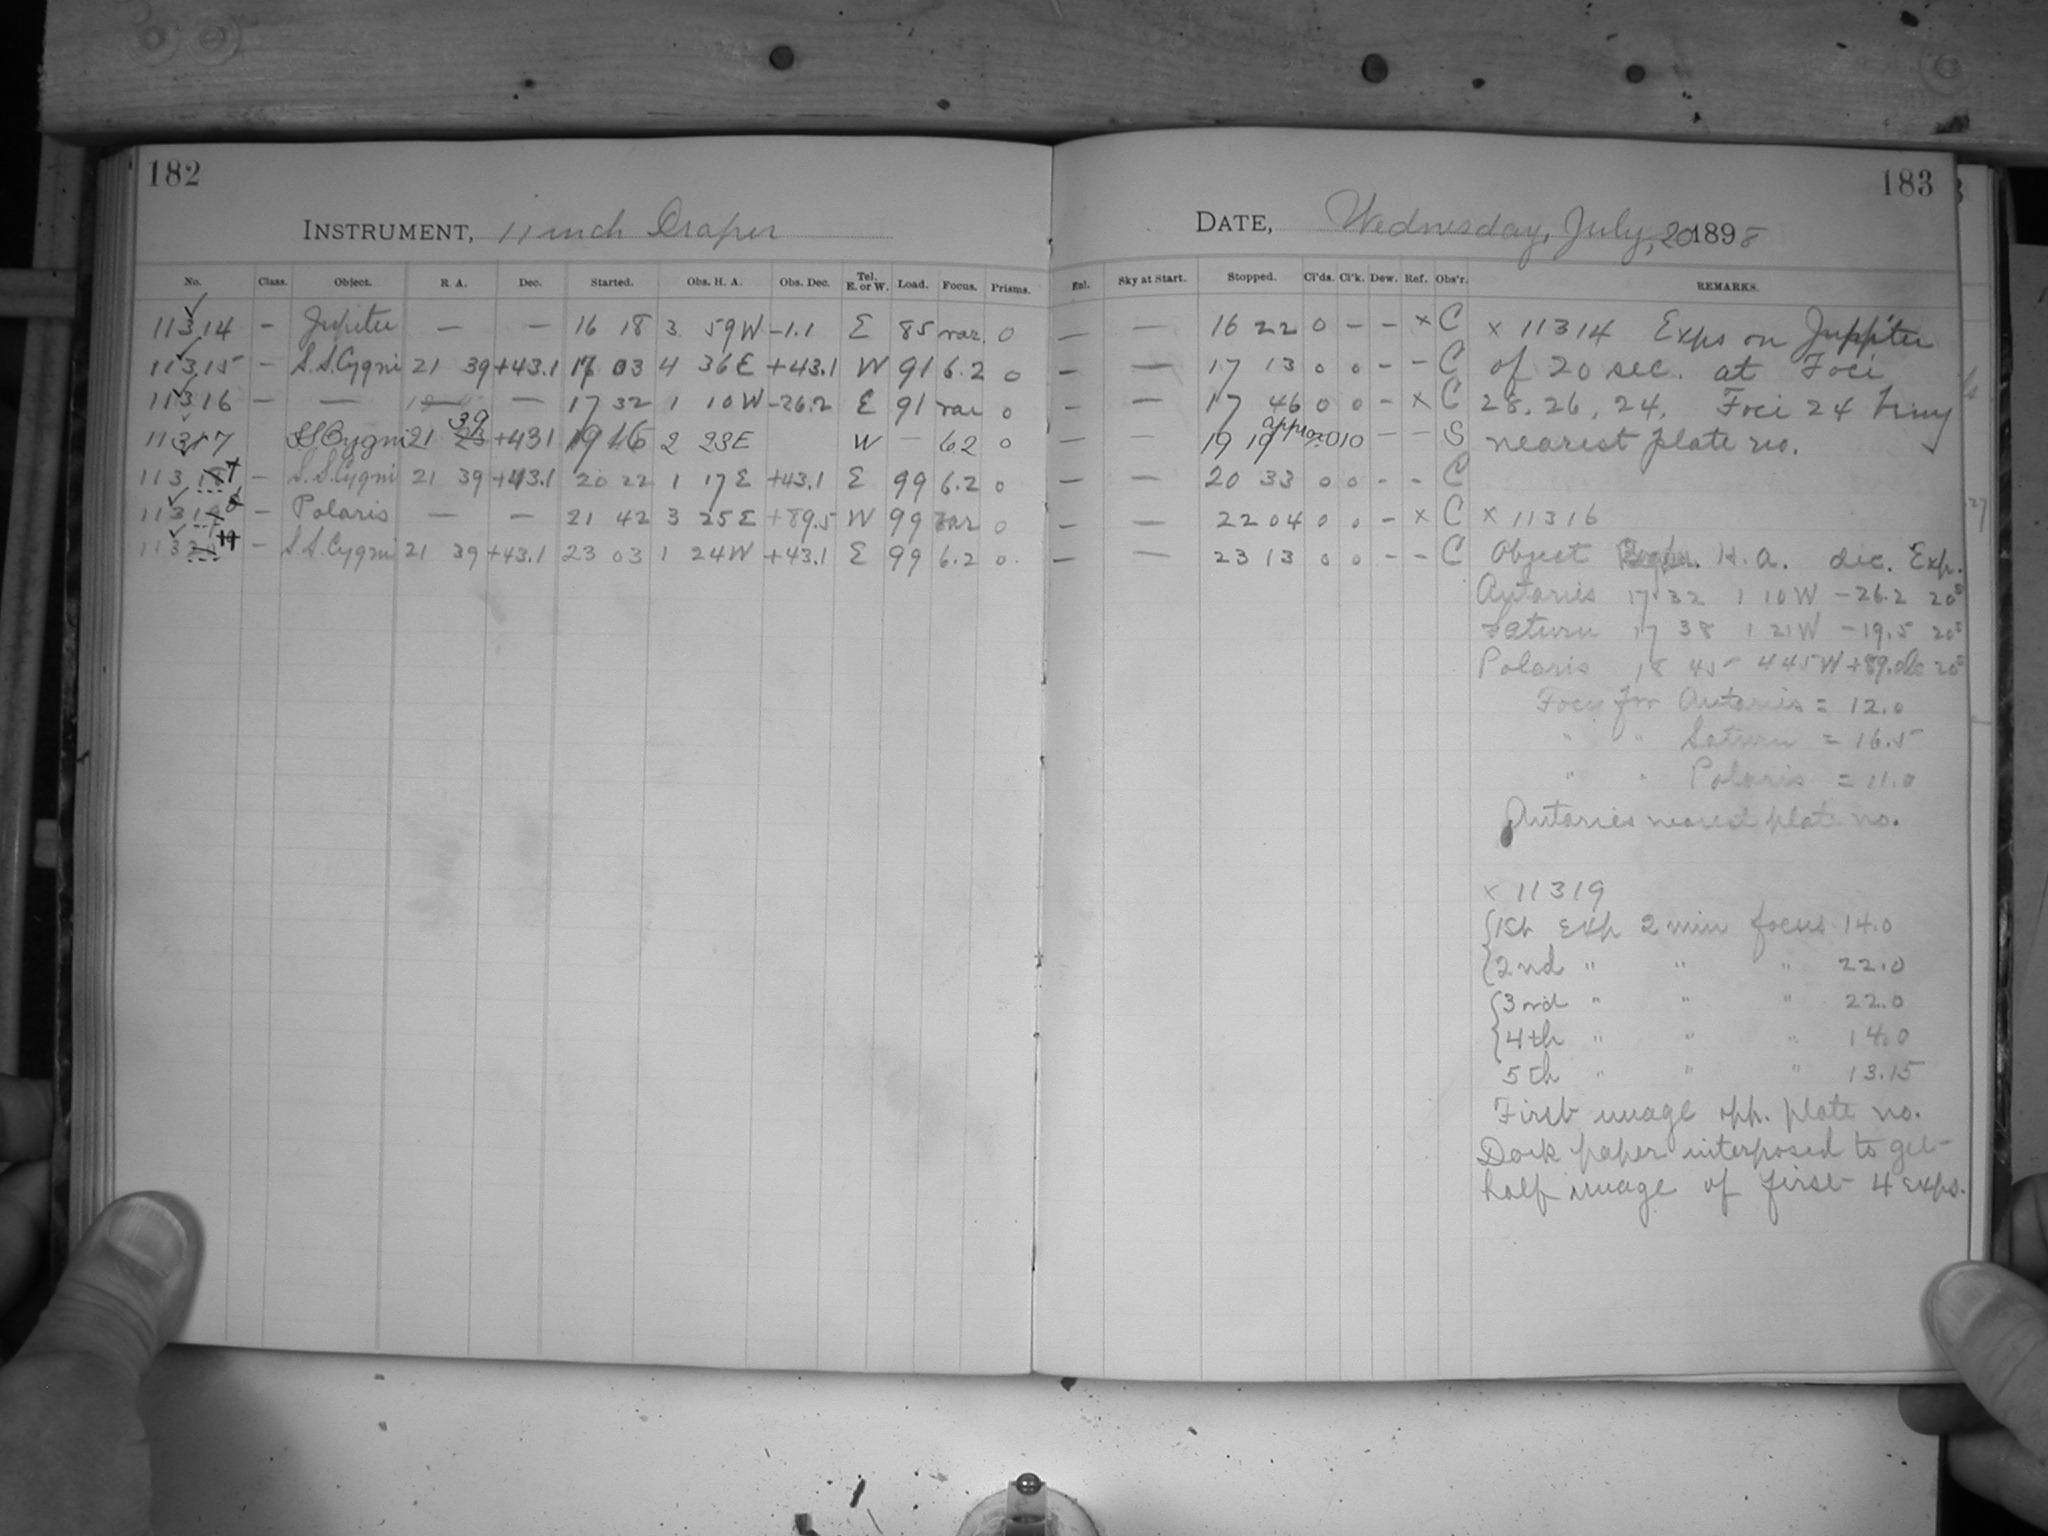 182
INSTRUMENT, 11 inch Draper
No. Class. Object. R. A. Dec. Started. Obs. H. A. Obs. Dec. Tel. E. or W. Load. Focus. Prisms.
11314 - Jupiter — — 16 18 3 59 W -1.1 E 85 var. 0
11315 - S.S. Cygni 21 39 +43.1 17 03 4 36 E +43.1 W 91 6.2 0
11316 - — — 17 32 1 10 W -26.2 E 91 var 0
11317 SS Cygni 21 39 +431 19 16 2 23 E W - 62 0
113 - S.S. Cygni 21 39 +43.1 20 22 1 17 E +43.1 E 99 6.2 0
113 - Polaris — — 21 42 3 25 E +89.5 W 99 var 0
113 - S.S. Cygni 21 39 +43.1 23 03 1 24 W +43.1 E 99 6.2 0
183
DATE, Wednesday, July, 20 1898
Enl. Sky at Start. Stopped. Cl'ds. Cl'k. Dew. Ref. Obs'r. REMARKS.
— — 16 22 0 - - x C x 11314 Exps on Jupiter
— — 17 13 0 0 - - C of 20 sec. at Foci
— — 17 46 0 0 - x C 28, 26, 24. Foci 24 being
19 19 approx 10 - - S nearest plate no.
— — 20 33 0 0 - - C
— — 22 04 0 0 - x C x 11316
— — 23 13 0 0 - - C Object H.A. dec. Exp.
Antaries 17 32 1 10 W -26.2 20s
Saturn 17 38 1 21 W -19.5 20s
Polaris 18 45 4 45 W 20s
Focus for Antaries = 12.0
" " Saturn = 16.5
" " Polaris = 11.0
Antaries nearest plate no.
x 11319
1st Exp 2 min focus 14.0
2nd " " " 22.0
3rd " " " 22.0
4th " " " 14.0
5th " " " 13.15
First image opp. plate no.
Dark paper interposed to get
half image of first 4 exps.